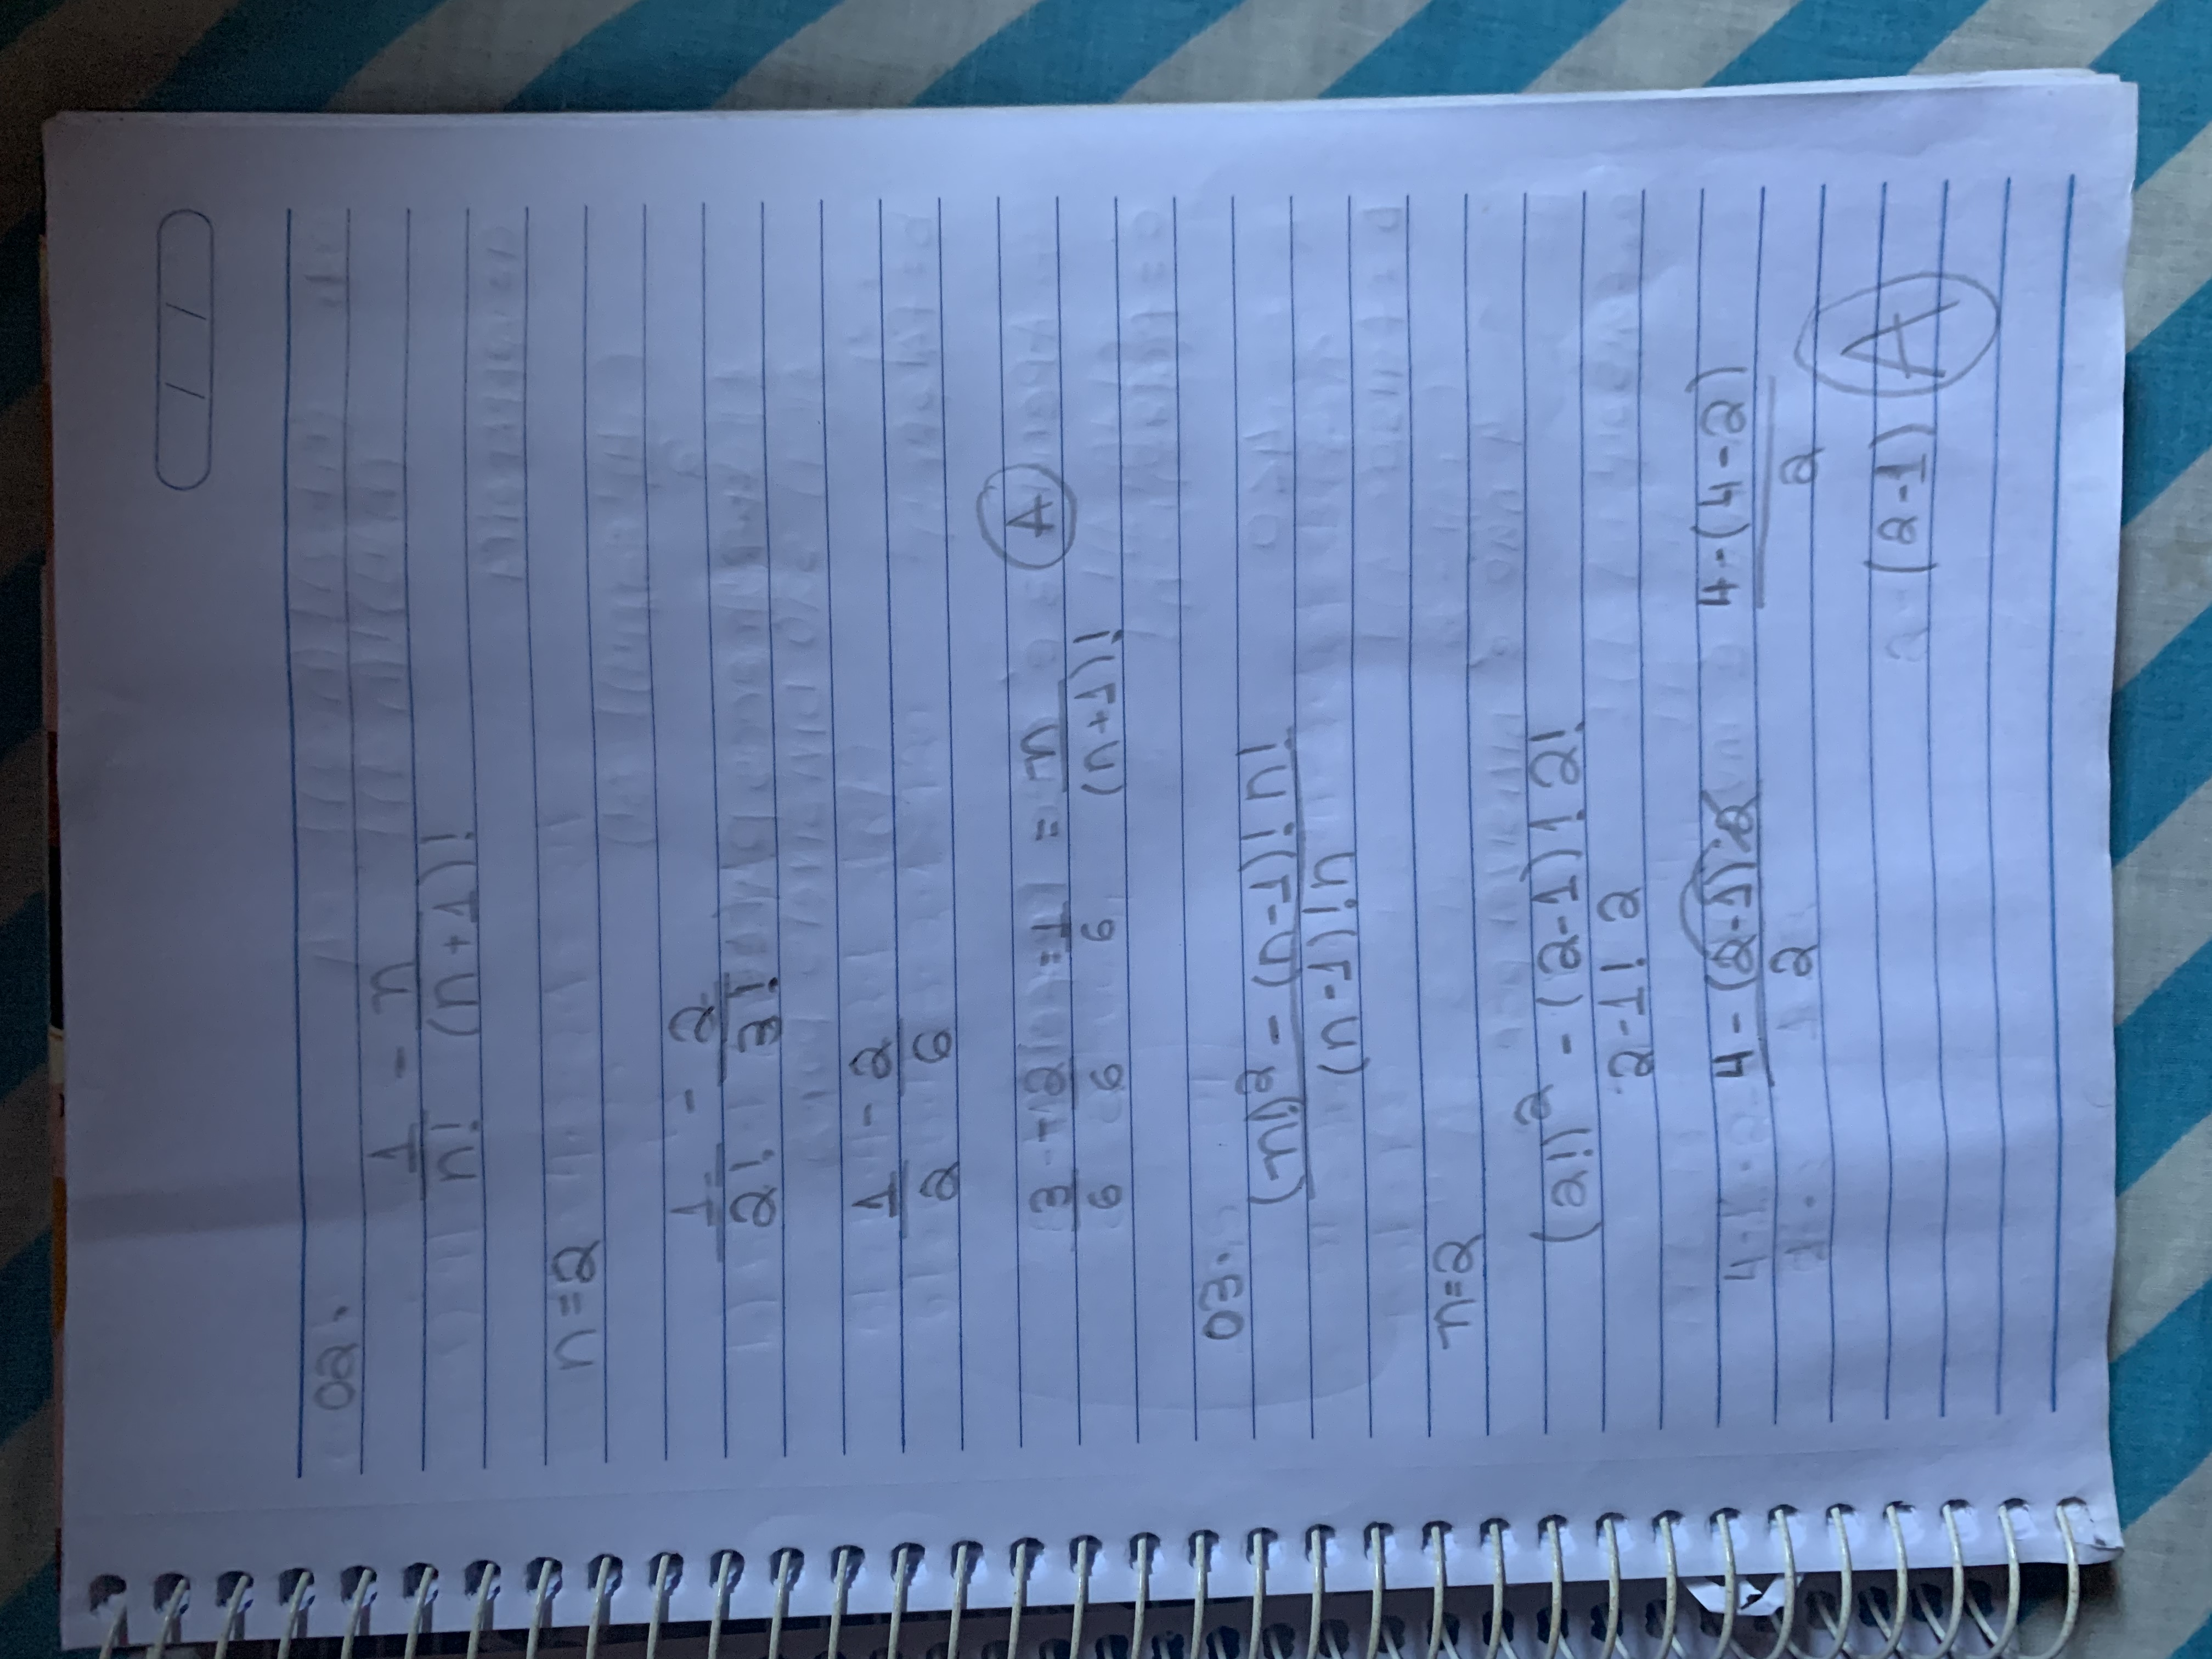 02.
1/n! - n/(n+1)!
n=2
1/2! - 2/3!
1/2 - 2/6
3/6 - 2/6 = 1/6 = n/(n+1)! A
03.
((n!)² - (n-1)! n!)/((n-1)! n)
n=2
(2!)² - (2-1)! 2!
2-1! 2
4 - (2-1) · 2 4 - (4-2)
2 2
(2-1) A